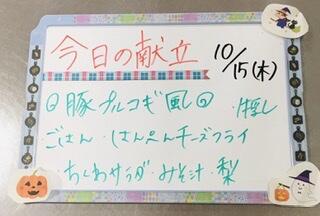 今日の献立 10/15(木)
◎豚プルコギ風◎ ・押し
ごはん・はんぺんチーズフライ
・ちくわサラダ・みそ汁・梨